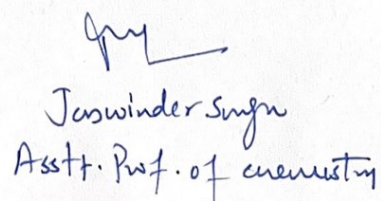 Jaswinder Singh
Asstt. Prof. of chemistry